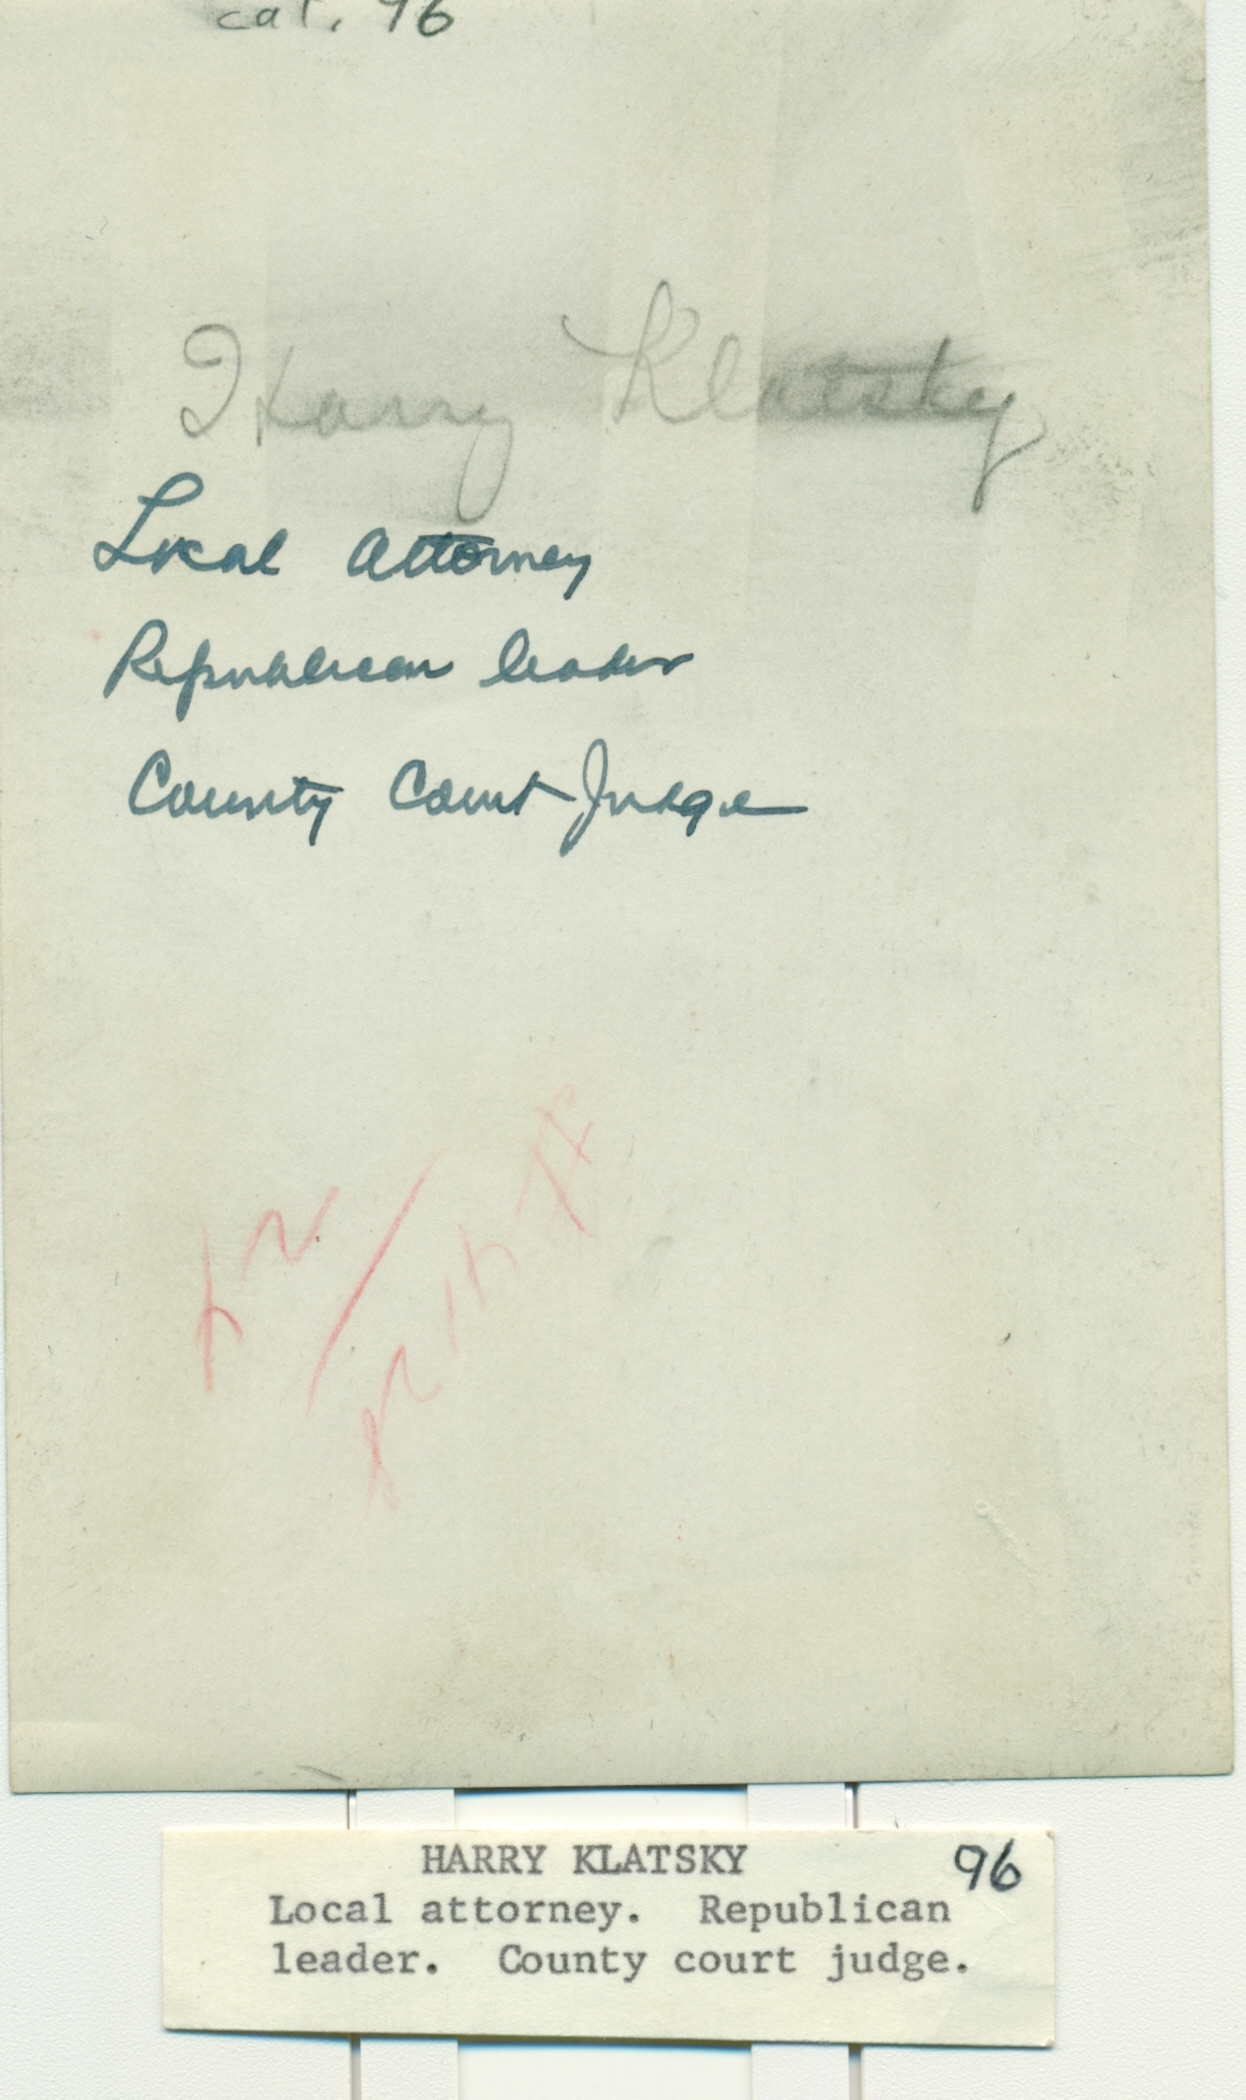 cat. 96
Harry Klatsky
Local attorney
Republican leader
County Court Judge
HARRY KLATSKY 96
Local attorney. Republican
leader. County court judge.